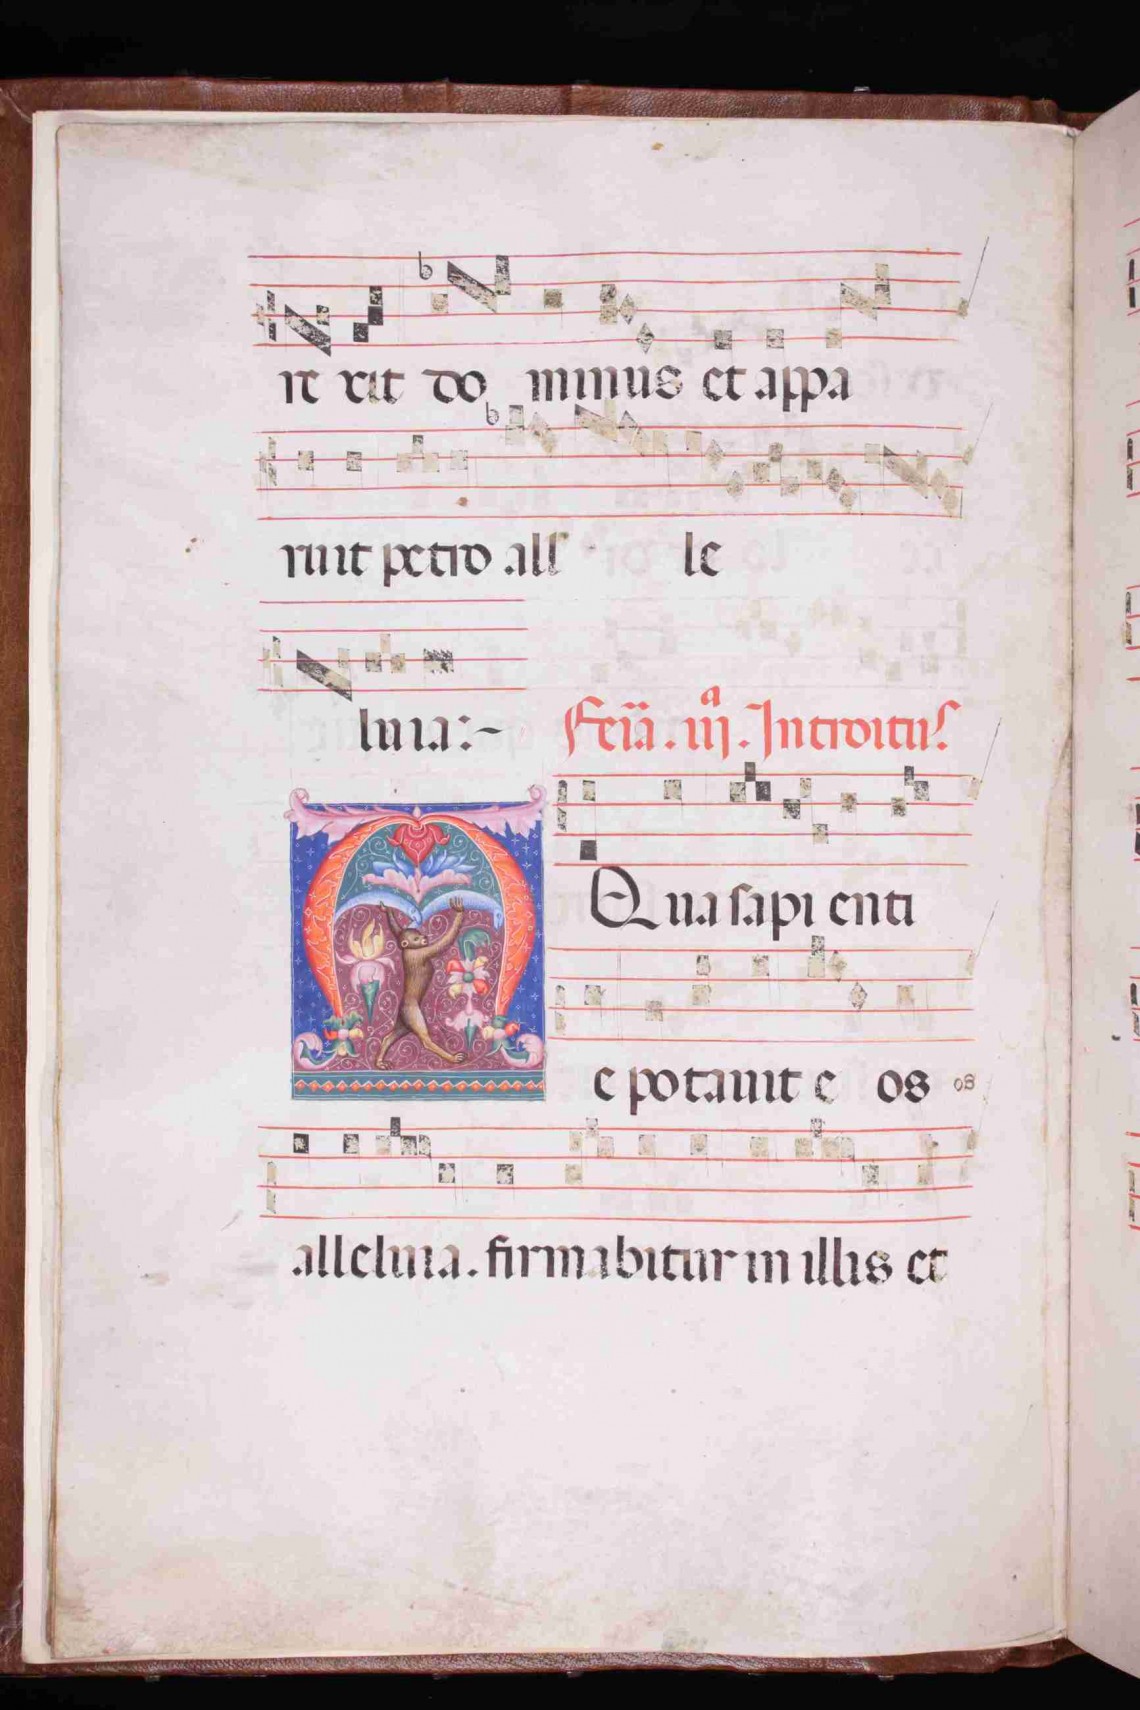 re xit do minus et appa
ruit petro all le
luia:~ Feria. iij.a Introitus.
AQua sapi enti
e potauit e os os
alleluia. firmabitur in illis et